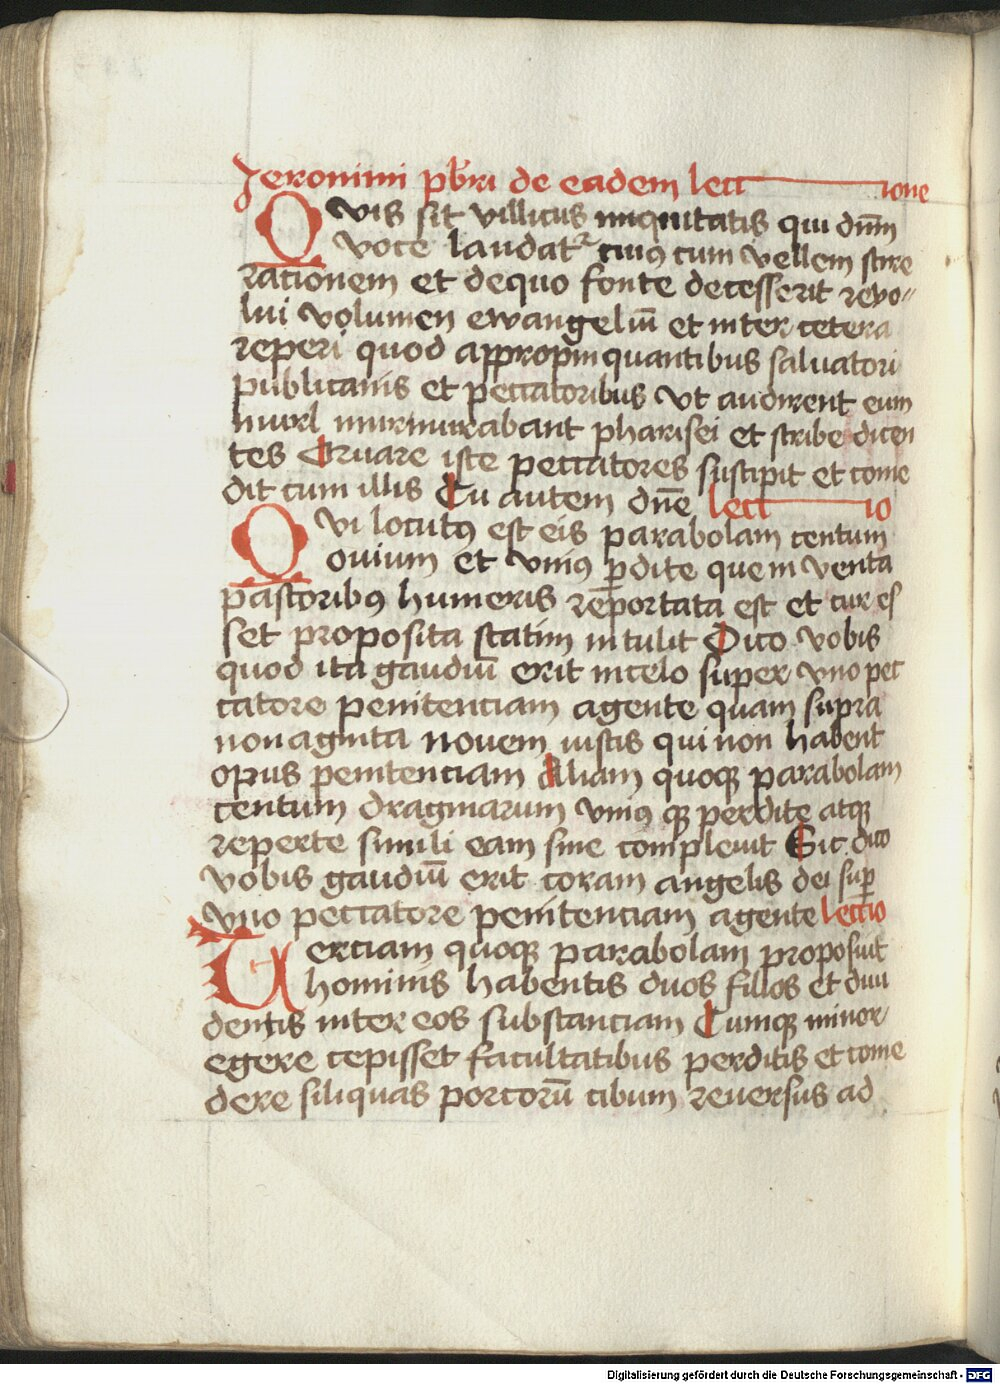 Jeronimi pbri de eadem lectione
Quis sit villicus iniquitatis qui dnm
voce laudatr cuius cum vellem scire
rationem et dequo fonte decesserit revo
lui volumen ewangeliu et inter cetera
reperi quod appropinquantibus salvatori
publicanis et peccatoribus vt audirent eum
murmurabant pharisei et scribe dicen
tes Cruare iste peccatores suscipit et come
dit cum illis Tu autem dne lectio
Qui locutus est eis parabolam centum
ovium et vnius pdite que inventa
pastoribus humeris reportata est et cur es
set proposita statim intulit Dico vobis
quod ita gaudiu erit incelo super vno pec
catore penitenciam agente quam supra
nonaginta novem iustis qui non habent
opus penitenciam Aliam quoque parabolam
centum dragmarum vnius que perdite atque
reperte simili eam fine complevit Sic dico
vobis gaudiu erit coram angelis dei sup
vno peccatore penitenciam agente lectio
Terciam quoque parabolam proposuit
hominis habentis duos filios et divi
dentis inter eos substanciam Cumque minor
egere cepisset facultatibus perditis et come
dere siliquas porcoru cibum reuersus ad
Digitalisierung gefördert durch die Deutsche Forschungsgemeinschaft - DFG